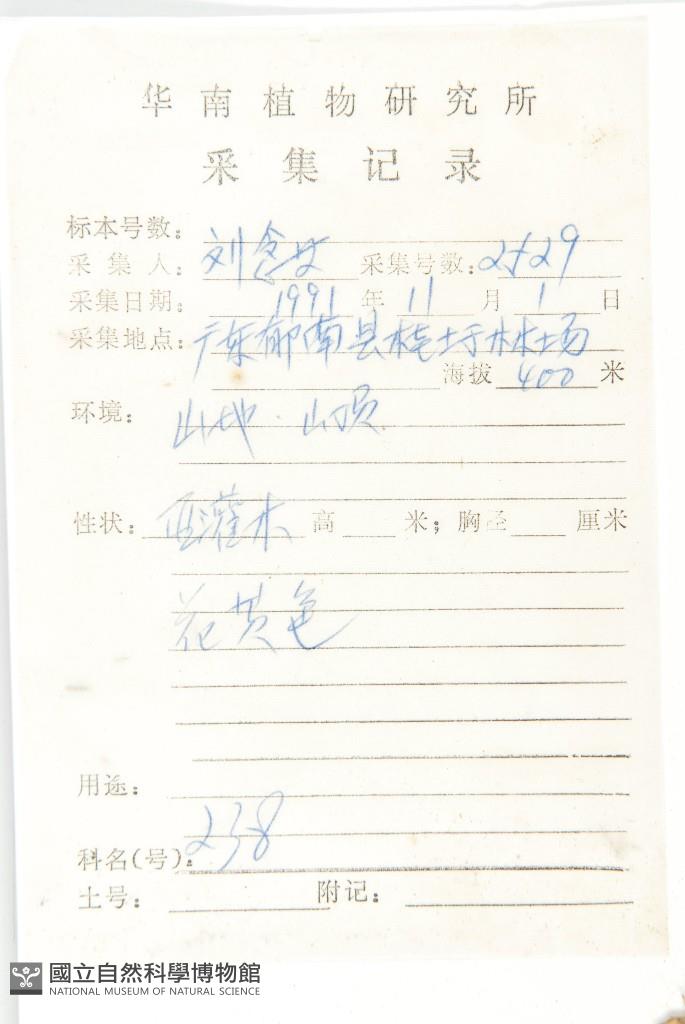 华南植物研究所
采集记录
标本号数:
采集人: 刘念 采集号数: 2529
采集日期: 1991 年 11 月 1 日
采集地点: 广东郁南县桂圩林场
海拔 400 米
环境: 山地·山顶
性状: 亚灌木 高 米; 胸径 厘米
花黄色
用途:
科名(号): 238
土号: 附记:
國立自然科學博物館
NATIONAL MUSEUM OF NATURAL SCIENCE